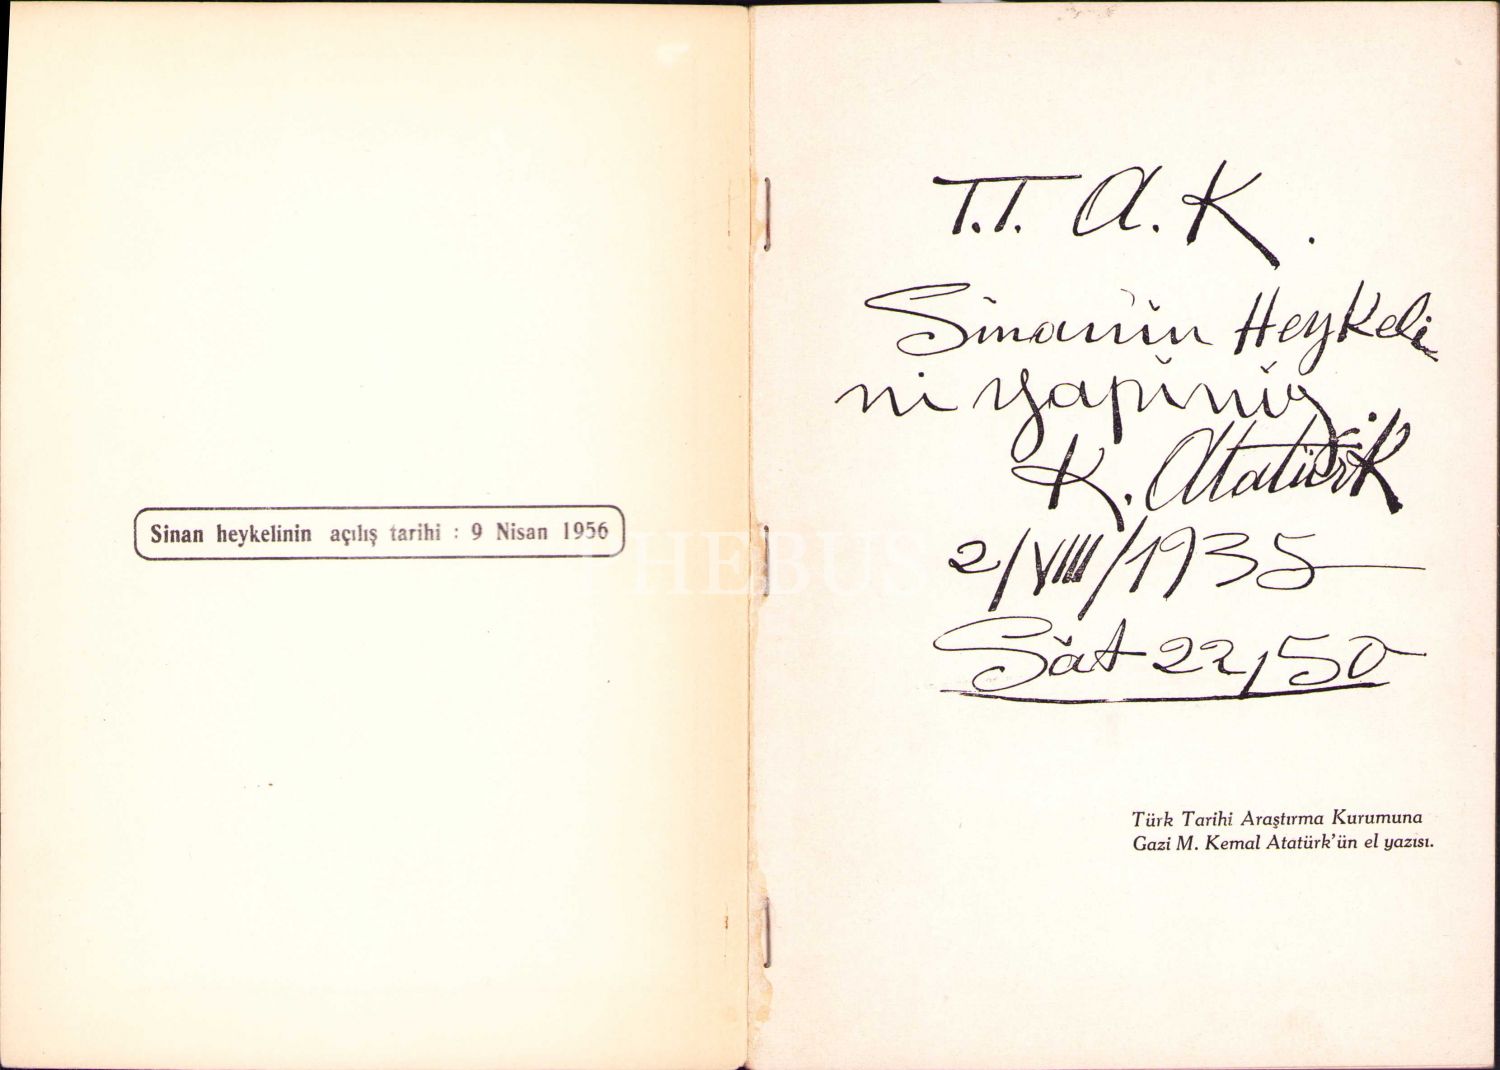 Sinan heykelinin açılış tarihi : 9 Nisan 1956
T.T. A. K.
Sinanın Heykeli
ni yapınız
K. Atatürk
2/VIII/1935
Săat 22,50
Türk Tarihi Araştırma Kurumuna
Gazi M. Kemal Atatürk'ün el yazısı.
PHEBUS